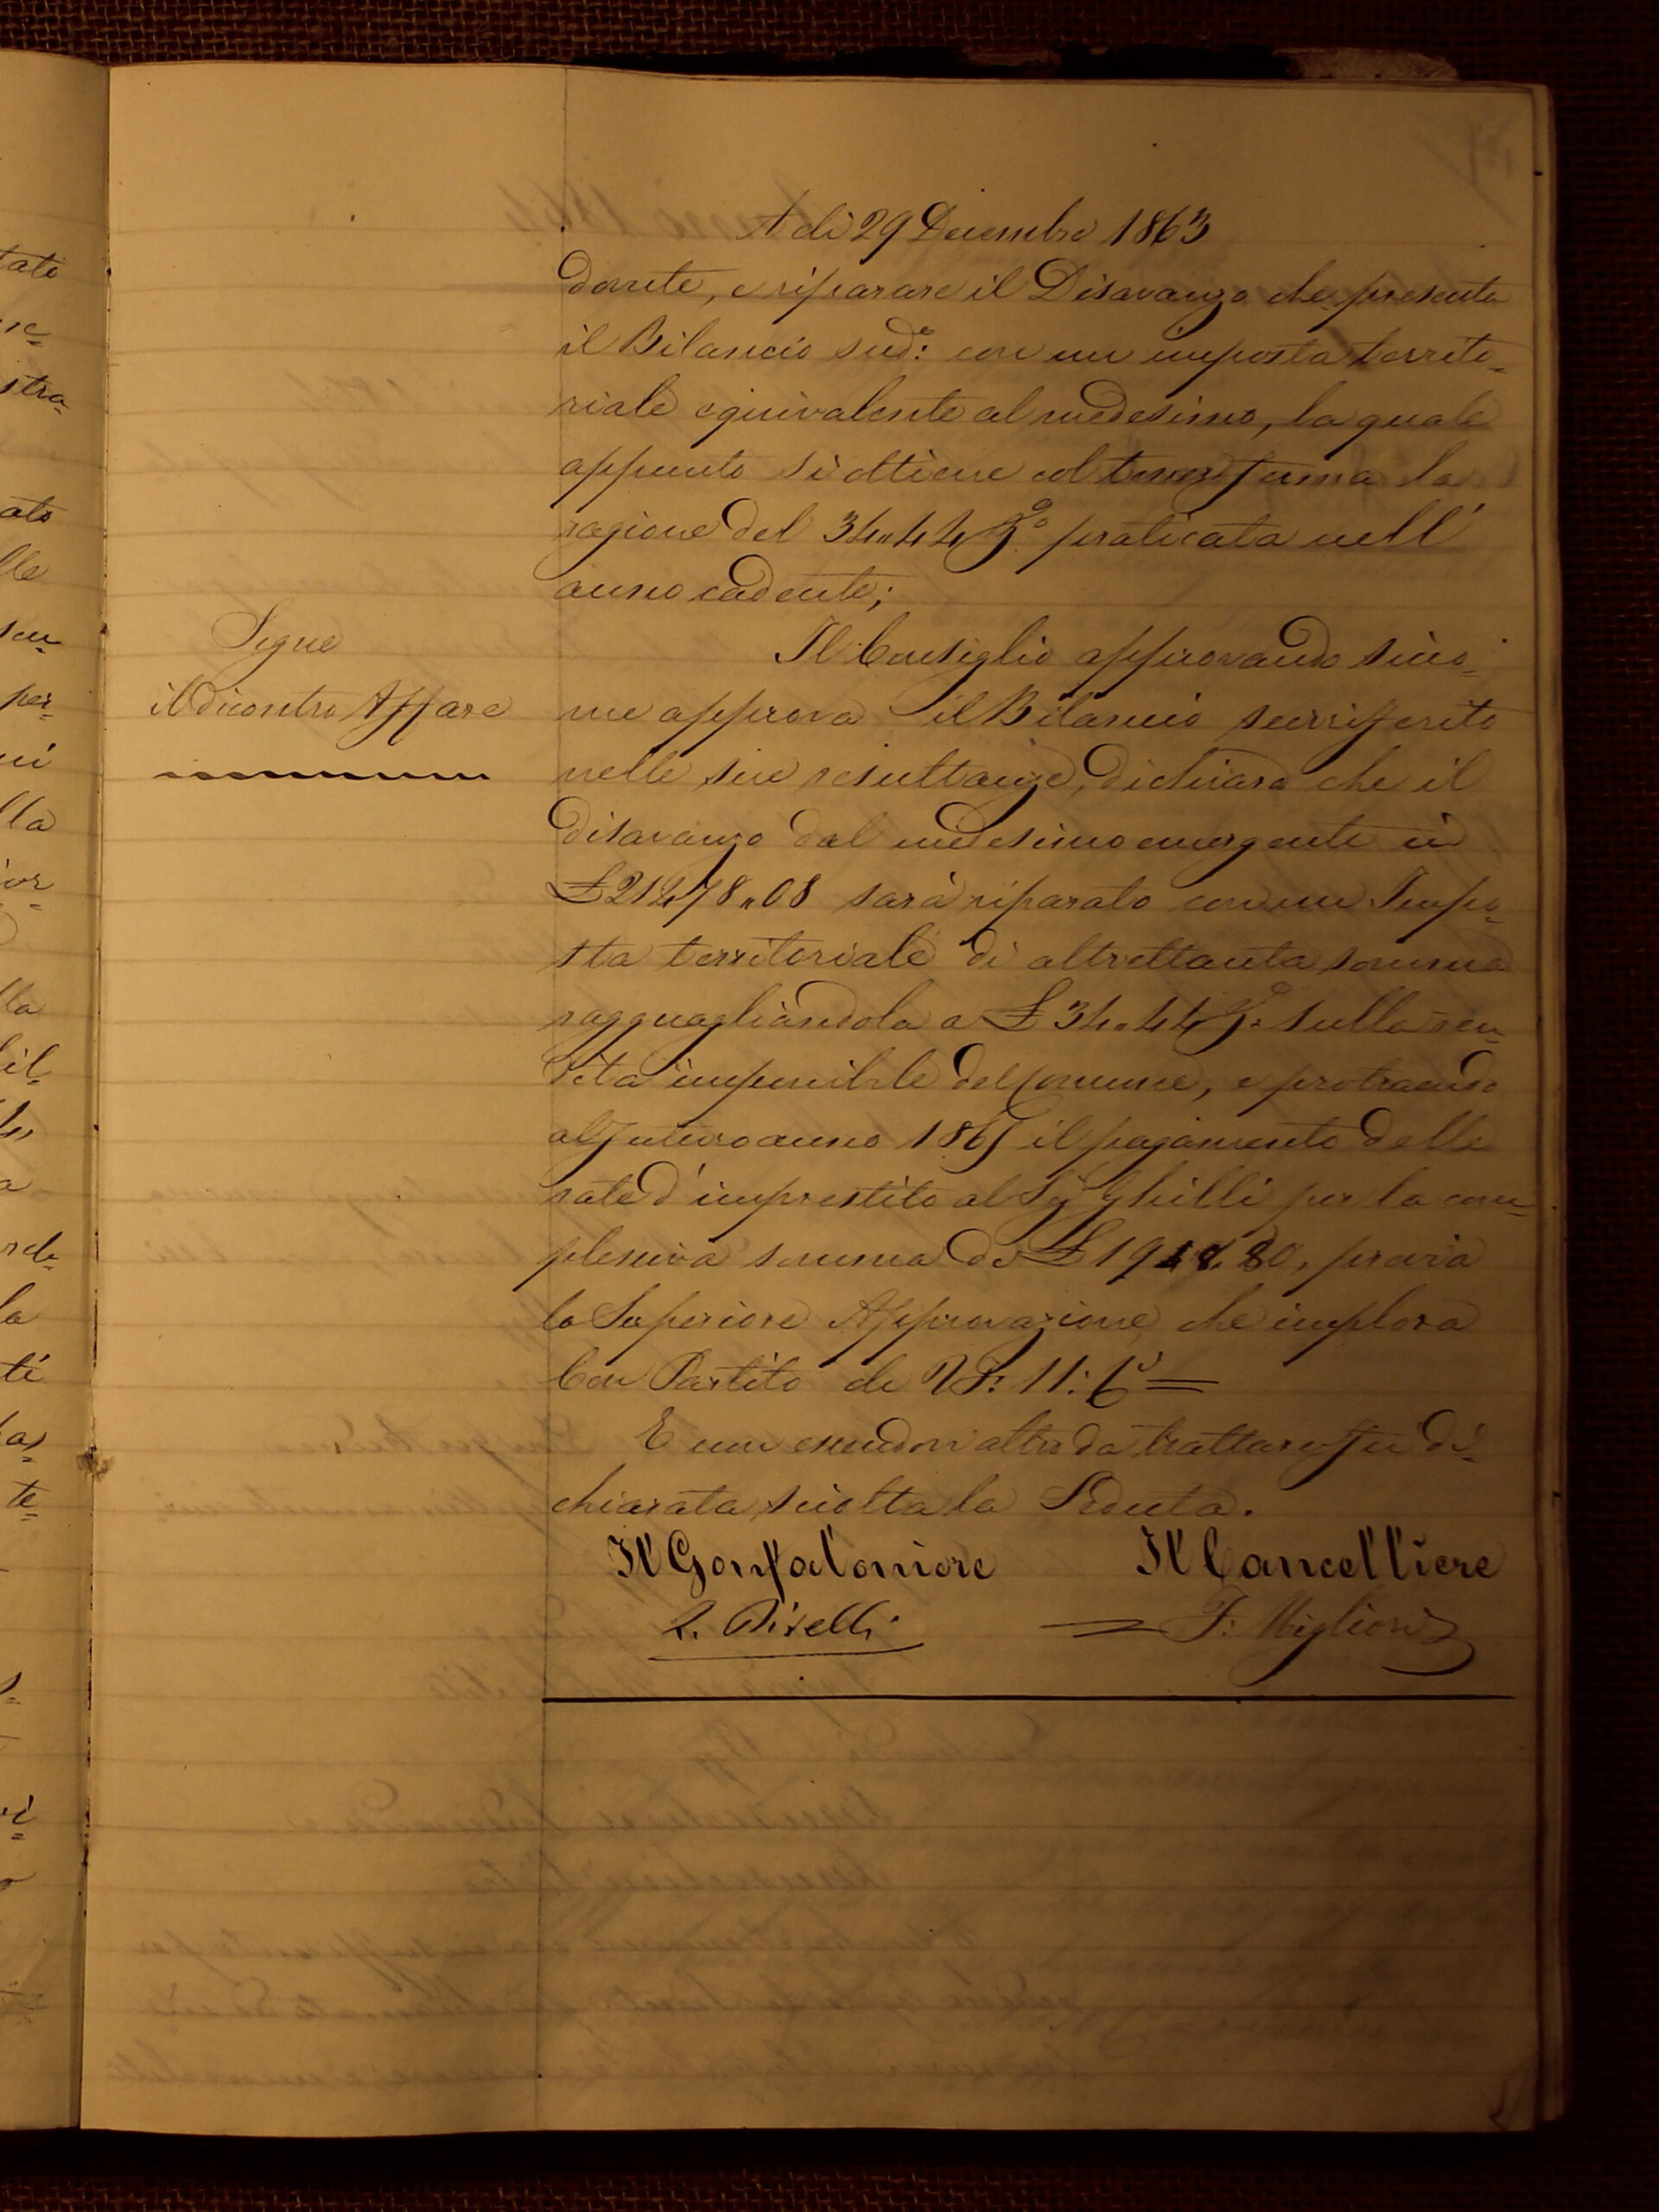 A dì 29 Decembre 1863
dovute, e riparare il Disavanzo che presenta
il Bilancio sud.o: con un imposta territo=
riale equivalente al medesimo, la quale
appunto si ottiene col tener ferma la
ragione del 34„44 % praticata nell'
anno cadente;
Segue
il dicontro Affare
Il Consiglio approvando sicco=
me approva il Bilancio surriferito
nelle sue resultanze, dichiara che il
disavanzo dal medesimo emergente in
£ 21478„08 sarà riparato con un Impo=
sta territoriale di altrettanta somma
ragguagliandola a £ 34„44 % sulla ren=
dita imponibile del Comune, e protraendo
al futuro anno 1865 il pagamento delle
rate d'imprestito al Sig Ghilli per la com=
plessiva somma di £ 80, previa
la Superiore Approvazione che implora
Con Partito di VF: 11: C
E non essendovi altro da trattare fu di=
chiarata sciolta la Seduta.
Il Gonfaloniere Il Cancelliere
F: Migliori